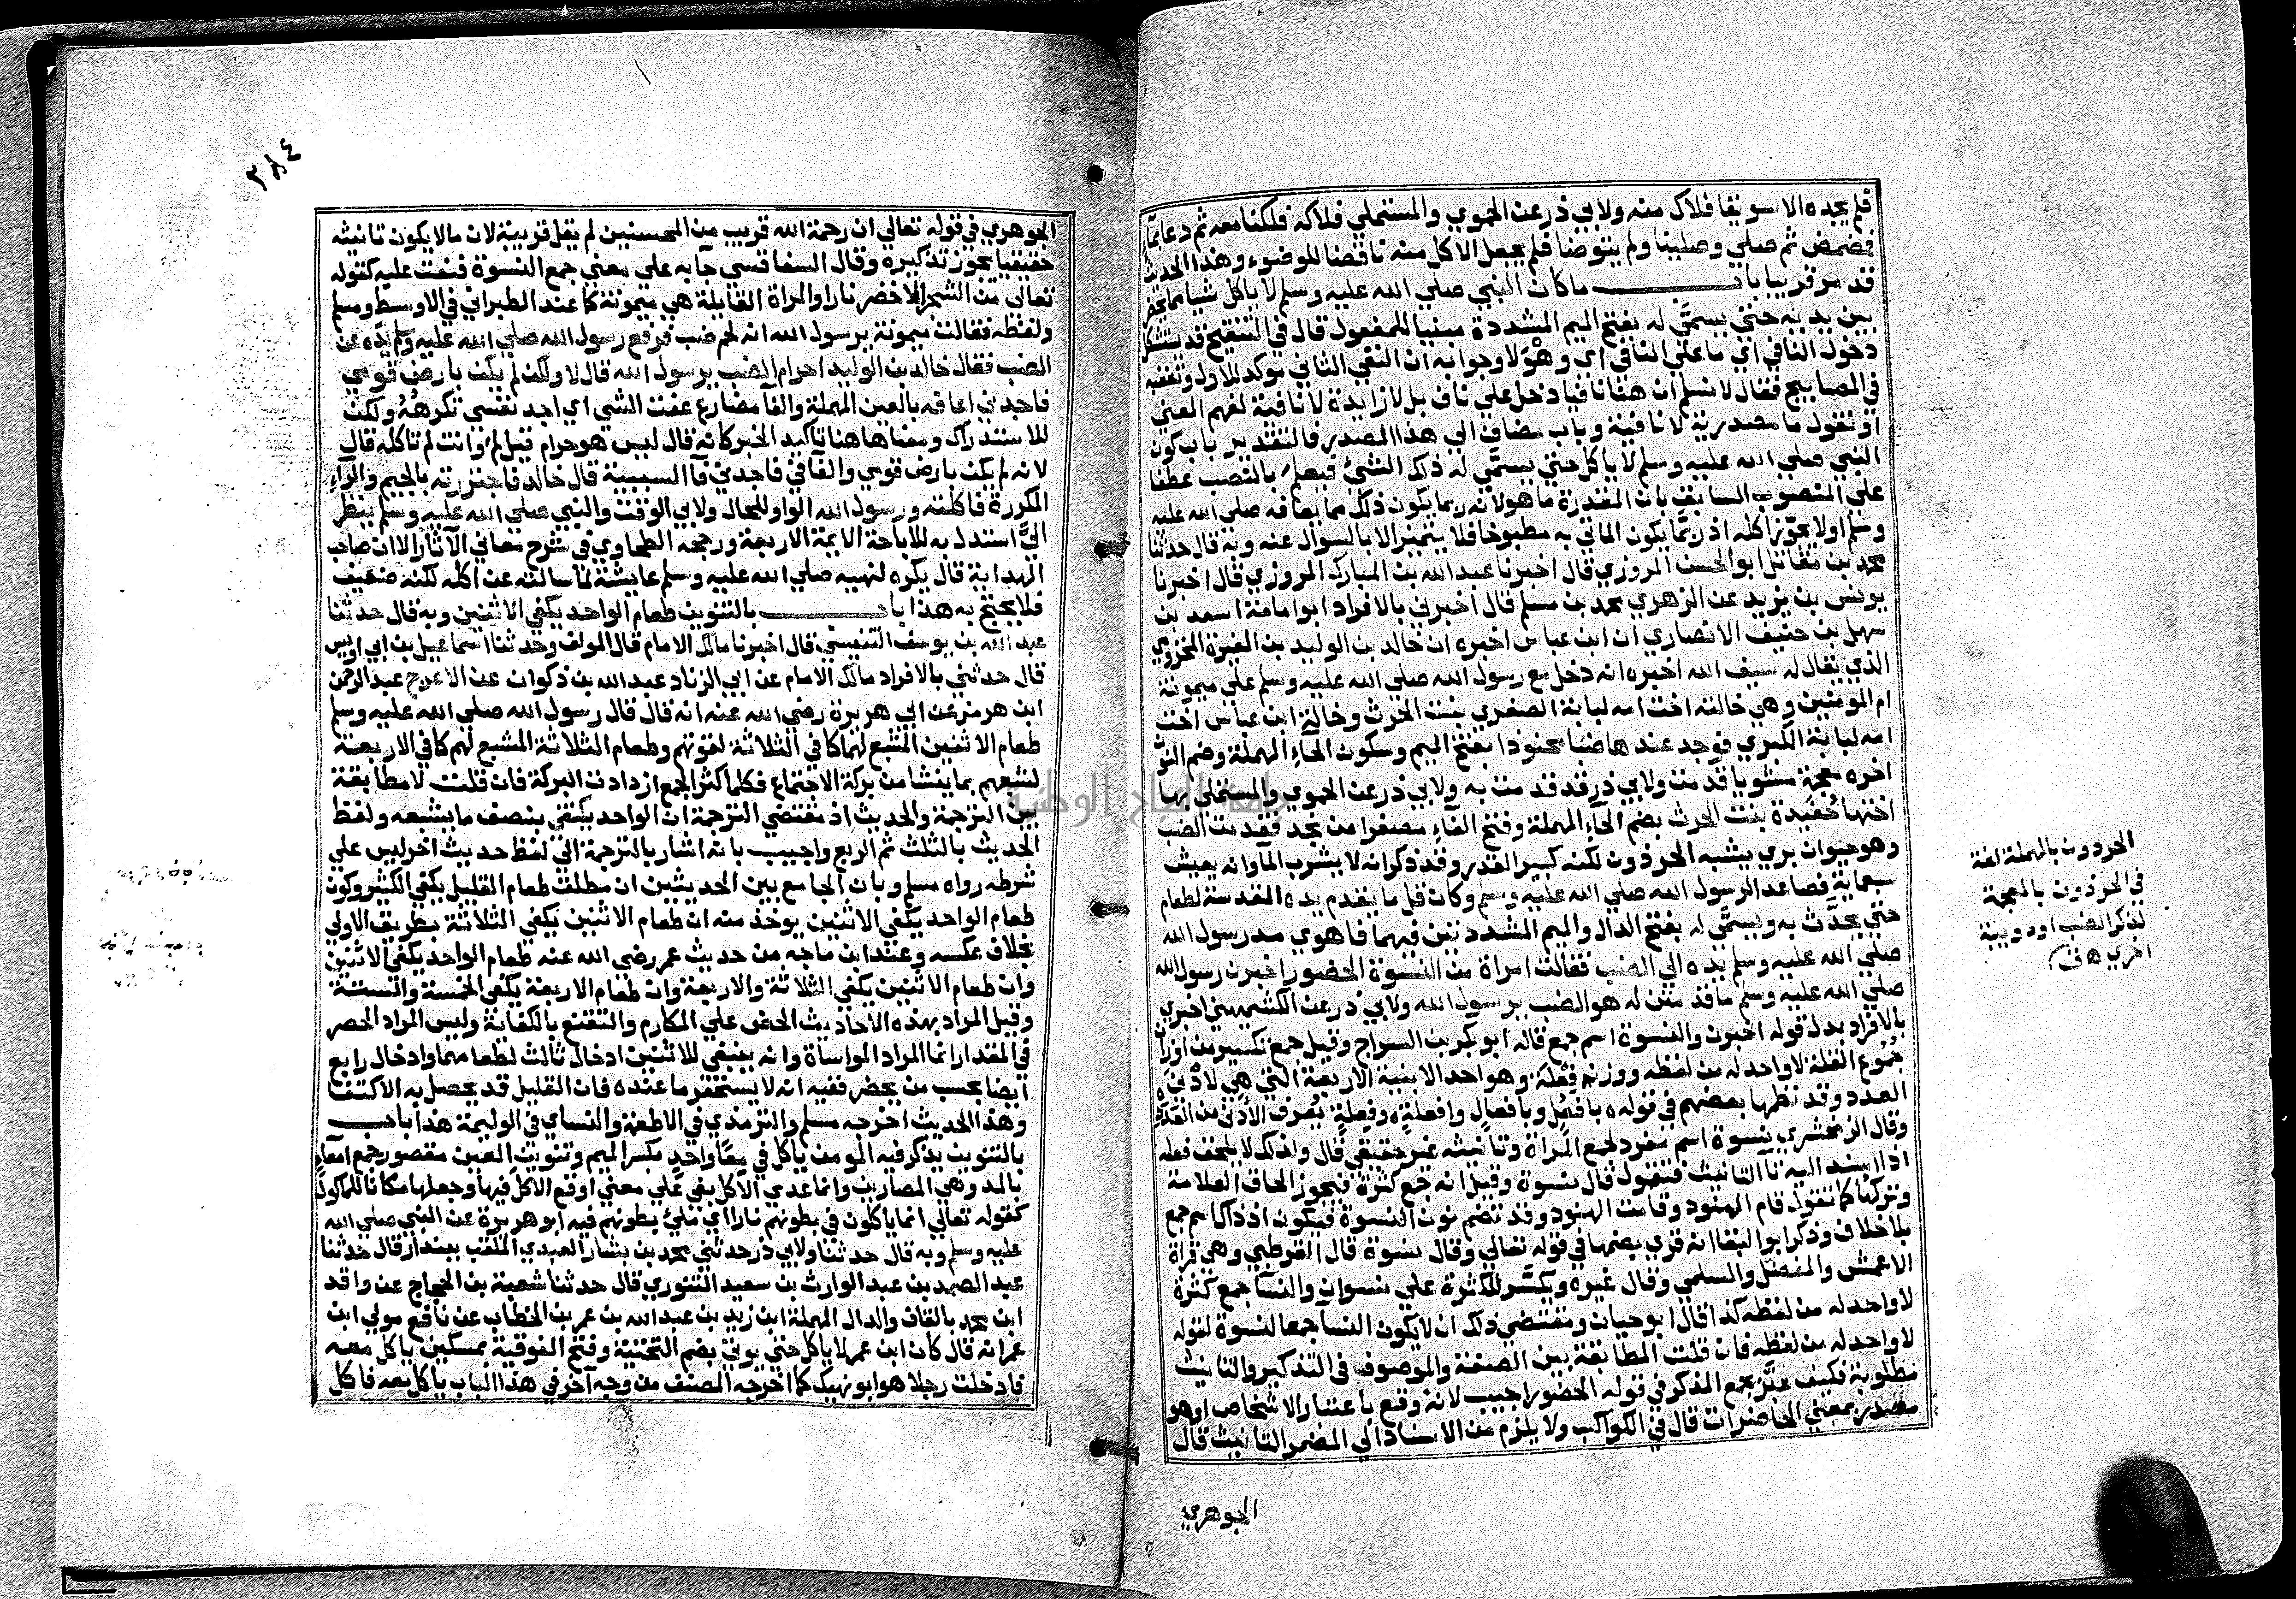 فلم يجده الا سويقا فلاك منه ولابي ذر عن الحموي والمستملي فلاكه فلكنا معه ثم دعا بماء
فمضمض ثم صلي وصلينا ولم يتوضا فلم يجعل الاكل منه ناقضا للوضوء وهذا الحديث
قد مر قريبا باب ما كان النبي صلي الله عليه وسلم لا ياكل شيا مما يحضر
بين يديه حتي يسمَّي له بفتح الميم المشددة مبنيا للمفعول قال في التنقيح قد يستشكل
دخول النافي اي ما علي النافي اي وهو لا وجوابه ان النفي الثاني موكد للاول وتعقبه
في المصابيح فقال لا نسلم ان هنا نافيا دخل علي ناف بل لا زايدة لا نافية لفهم المعني
او نقول ما مصدرية لا نافية وباب مضاف الي هذا المصدر فالتقدير باب كون
النبي صلي الله عليه وسلم لا ياكل حتي يسمَّي له ذلك الشئ فيعلم بالنصب عطفا
علي المنصوب السابق بان المقدرة ما هو لانه ربما يكون ذلك مما يعافه صلي الله عليه
وسلم او لا يجوز اكله اذ ربما يكون الماتي به مطبوخا فلا يتميز الا بالسوال عنه وبه قال حدثنا
محمد بن مقاتل ابو الحسن المروزي قال اخبرنا عبد الله بن المبارك المروزي قال اخبرنا
يونس بن يزيد عن الزهري محمد بن مسلم قال اخبرني بالافراد ابو امامة اسعد بن
سهل بن حنيف الانصاري ان ابن عباس اخبره ان خالد بن الوليد بن المغيرة المخزومي
الذي يقال له سيف الله اخبره انه دخل مع رسول الله صلي الله عليه وسلم علي ميمونة
ام المومنين وهي خالته اخت امه لبابة الصغري بنت الحرث وخالة ابن عباس اخت
امه لبابة الكبري فوجد عندها ضبا محنوذا بفتح الميم وسكون الحاء المهملة وضم النون
اخره معجمة مشويا قدمت ولابي ذر قد قدمت به ولابي ذر عن الحموي والمستملي بها
اختها حُفَيدة بنت الحرث بضم الحاء المهملة وفتح الفاء مصغرا من نجد فقدمت الضب
وهو حيوان بري يشبه الحرذون لكنه كبير القدر وقد ذكر انه لا يشرب الما وانه يعيش
سبعماية فصاعدا لرسول الله صلي الله عليه وسلم وكان قل ما يقدم يده المقدسة لطعام
حتي يحدَّث به ويسمَّي له بفتح الدال والميم المشددتين فيهما فاهوي مد رسول الله
صلي الله عليه وسلم يده الي الضب فقالت امراة من النسوة الحضور اخبرن رسول الله
صلي الله عليه وسلم ما قدمتن له هو الضب يرسول الله ولابي ذر عن الكشميهني اخبري
بالافراد بدل قوله اخبرن والنسوة اسم جمع قاله ابو بكر بن السراج وقيل جمع تكسير من اوزان
جموع القلة لا واحد له من لفظه ووزنه فِعْلة وهو احد الابنية الاربعة التي هي لادني
العدد وقد نظمها بعضهم في قوله ه بافعُل وبافعال وافعلةٍ ه وفعلةٍ يُعرف الأدني من العدد ه
وقال الزمخشري نسوة اسم مفرد لجمع المراة وتانيثه غير حقيقي قال ولذلك لا يلحق فعله
اذا اسند اليه تا التانيث فتقول قال نسوة وقيل انه جمع كثرة فيجوز الحاق العلامة
وتركها كما تقول قام الهنود وقامت الهنود وقد تضم نون النسوة فيكون اذ ذاك اسم جمع
بلا خلاف وذكر ابو البقا انه قري بضمها في قوله تعالي وقال نسوة قال القرطبي وهي قراة
الاعمش والمفضل والسلمي وقال غيره ويكسَّر للكثرة علي نسوان والنسا جمع كثرة
لا واحد له من لفظه كذا قال ابو حيان ومقتضي ذلك ان لا يكون النسا جمعا لنسوة لقوله
لا واحد له من لفظه فان قلت المطابقة بين الصفة والموصوف في التذكير والتانيث
مطلوبة فكيف عبَّر بجمع المذكر في قوله الحضور اجيب لانه وقع باعتبار الاشخاص او هو
مصدر بمعني الحاضرات قال في الكواكب ولا يلزم من الاسناد الي المضمر التانيث قال
الجوهري
الحردون بالمهملة لغة
في الحرذون بالمعجمة
لذكر الضب او دويبة
اخري ه ق
٣٨٤
الجوهري في قوله تعالي ان رحمة الله قريب من المحسنين لم يقل قريبة لان ما لا يكون تانيثه
حقيقيا يجوز تذكيره وقال السفاقسي جا به علي معني جمع النسوة فنعت عليه كقوله
تعالي من الشجر الاخضر نارا والمراة القايلة هي ميمونة كما عند الطبراني في الاوسط ومسلم
ولفظه فقالت ميمونة يرسول الله انه لحم ضب فرفع رسول الله صلي الله عليه وسلم يده عن
الضب فقال خالد بن الوليد احرام الضب يرسول الله قال لا ولكن لم يكن بارض قومي
فاجدني اعافه بالعين المهملة والفا مضارع عفت الشي اي اجد نفسي تكرهُهُ ولكن
للاستدراك ومعناها هنا تاكيد الخبر كانه قال ليس هو حرام قيل لِمَ وانت لم تاكله قال
لانه لم يكن بارض قومي والفا في فاجدني فا السببية قال خالد فاجتززته بالجيم والزاء
المكررة فاكلته ورسول الله الواو للحال ولابي الوقت والنبي صلي الله عليه وسلم ينظر
اليَّ استدل به للاباحة الايمة الاربعة ورجحه الطحاوي في شرح معاني الآثار الا ان صاحب
الهداية قال يكره لنهيه صلي الله عليه وسلم عايشة لما سالته عن اكله لكنه ضعيف
فلا يحتج به هذا باب بالتنوين طعام الواحد يكفي الاثنين وبه قال حدثنا
عبد الله بن يوسف التنيسي قال اخبرنا مالك الامام قال المولف وحدثنا اسماعيل بن ابي اويس
قال حدثني بالافراد مالك الامام عن ابي الزناد عبد الله بن ذكوان عن الاعرج عبد الرحمن
ابن هرمز عن ابي هريرة رضي الله عنه انه قال قال رسول الله صلي الله عليه وسلم
طعام الاثنين المشبع لهما كافي الثلاثة لقوتهم وطعام الثلاثة المشبع لهم كافي الاربعة
لشبعهم بما ينشا من بركة الاجتماع فكلما كثر الجمع ازدادت البركة فان قلت لا مطابقة
بين الترجمة والحديث اذ مقتضي الترجمة ان الواحد يكتفي بنصف ما يشبعه ولفظ
الحديث بالثلث ثم الربع واجيب بانه اشار بالترجمة الي لفظ حديث اخر ليس علي
شرطه رواه مسلم وبان الجامع بين الحديثين ان مطلق طعام القليل يكفي الكثير وكون
طعام الواحد يكفي الاثنين يوخذ منه ان طعام الاثنين يكفي الثلاثة بطريق الاولي
بخلاف عكسه وعند ابن ماجه من حديث عمر رضي الله عنه طعام الواحد يكفي الاثنين
وان طعام الاثنين يكفي الثلاثة والاربعة وان طعام الاربعة يكفي الخمسة والستة
وقيل المراد بهذه الاحاديث الحض علي المكارم والتقنع بالكفاية وليس المراد الحصر
في المقدار انما المراد المواساة وانه ينبغي للاثنين ادخال ثالث لطعامهما وادخال رابع
ايضا بحسب من يحضر ففيه انه لا يستحقر ما عنده فان القليل قد يحصل به الاكتفا
وهذا الحديث اخرجه مسلم والترمذي في الاطعمة والنساي في الوليمة هذا باب
بالتنوين يذكر فيه المومن ياكل في مِعًا واحدٍ بكسر الميم وتنوين العين مقصور جمع امعاء
بالمد وهي المصارين وانما عدي الاكل بفي علي معني اوقع الاكل فيها وجعلها مكانا للماكول
كقوله تعالي انما ياكلون في بطونهم نارا اي ملئ بطونهم فيه ابو هريرة عن النبي صلي الله
عليه وسلم وبه قال حدثنا ولابي ذر حدثني محمد بن بشار العبدي الملقب ببندار قال حدثنا
عبد الصمد بن عبد الوارث بن سعيد التنوري قال حدثنا شعبة بن الحجاج عن واقد
ابن محمد بالقاف والدال المهملة ابن زيد بن عبد الله بن عمر بن الخطاب عن نافع مولي ابن
عمر انه قال كان ابن عمر لا ياكل حتي يوتي بضم التحتية وفتح الفوقية بمسكين ياكل معه
فادخلت رجلا هو ابو نهيك كما اخرجه المصنف من وجه آخر في هذا الباب ياكل معه فاكل
جامعة النجاح الوطنية